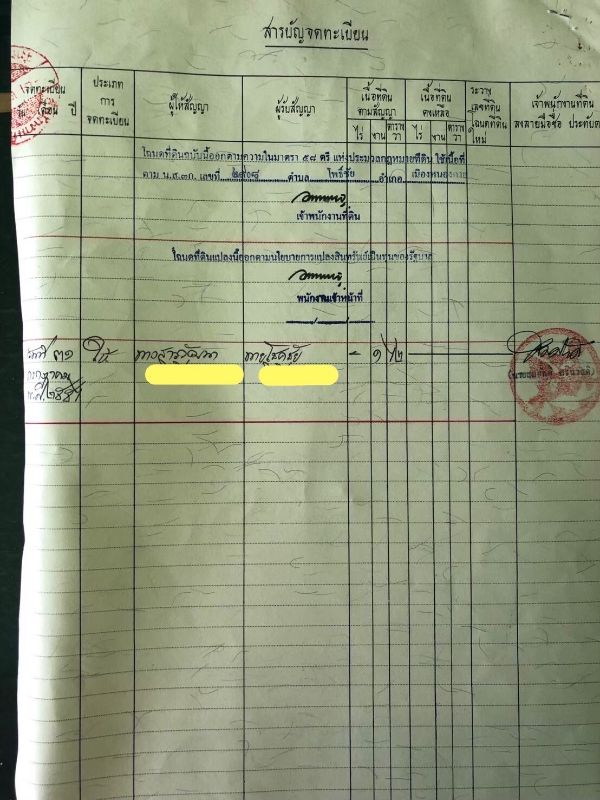 สารบัญจดทะเบียน
จดทะเบียน
เดือน ปี
ประเภท
การ
จดทะเบียน
ผู้ให้สัญญา
ผู้รับสัญญา
เนื้อที่ดิน
ตามสัญญา
ไร่ งาน ตาราง
วา
เนื้อที่ดิน
คงเหลือ
ไร่ งาน ตาราง
วา
ระวาง
เลขที่ดิน
โฉนดที่ดิน
ใหม่
เจ้าพนักงานที่ดิน
ลงลายมือชื่อ ประทับตรา
โฉนดที่ดินฉบับนี้ออกตามความในมาตรา ๕๘ ตรี แห่งประมวลกฎหมายที่ดิน ใช้เนื้อที่
ตาม น.ส.๓ก. เลขที่ ตำบล โพธิ์ชัย อำเภอ เมืองหนองคาย
เจ้าพนักงานที่ดิน
โฉนดที่ดินแปลงนี้ออกตามนโยบายการแปลงสินทรัพย์เป็นทุนของรัฐบาล
พนักงานเจ้าหน้าที่
วันที่ ๓๑ ให้ นายโชคชัย - ๑
กรกฎาคม